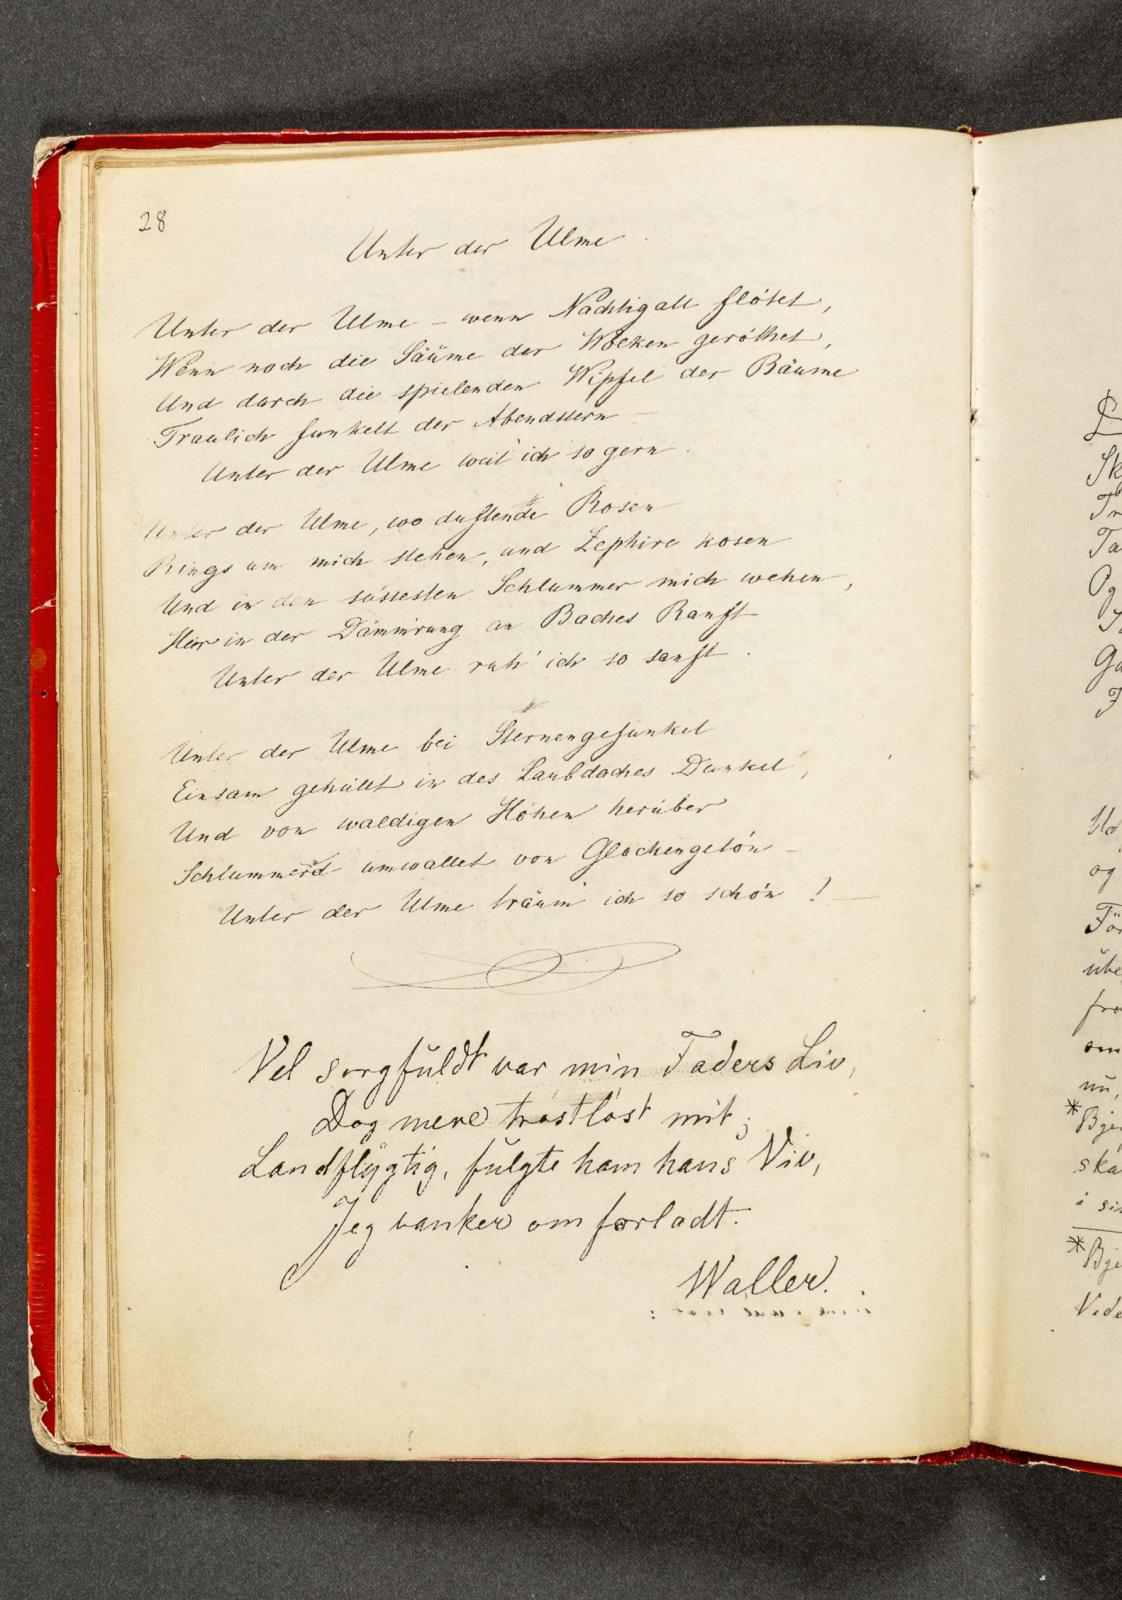 28
Unter der Ulme.
Unter der Ulme – wenn Nachtigall flötet,
Wenn noch die Säume der Wolken geröthet,
Und durch die spielenden Wipfel der Bäume
Traulich funkelt der Abendstern –
Unter der Ulme weil' ich so gern.
Unter der Ulme, wo duftende Rosen
Rings um mich stehen, und Zephire kosen
Und in den süssesten Schlummer mich wehen,
Hier in der Dämmrung an Baches Ranft
Unter der Ulme ruh' ich so sanft.
Unter der Ulme bei Sternengefunkel
Einsam gehüllt in des Laubdaches Dunkel,
Und von waldigen Höhen herüber
Schlummernd umwallet von Glockengetön –
Unter der Ulme träum' ich so schön! –
Vel sorgfuldt var min Faders Liv,
Dog mere trøstløst mit;
Landflygtig, fulgte ham hans Viv,
Jeg vanker om forladt.
Waller.
Sk
Tr
Ta
Og
Ga
F
Ud
og
För
übe
fra
om
nu,
*Bje
ska
i si
*Bje
Vide